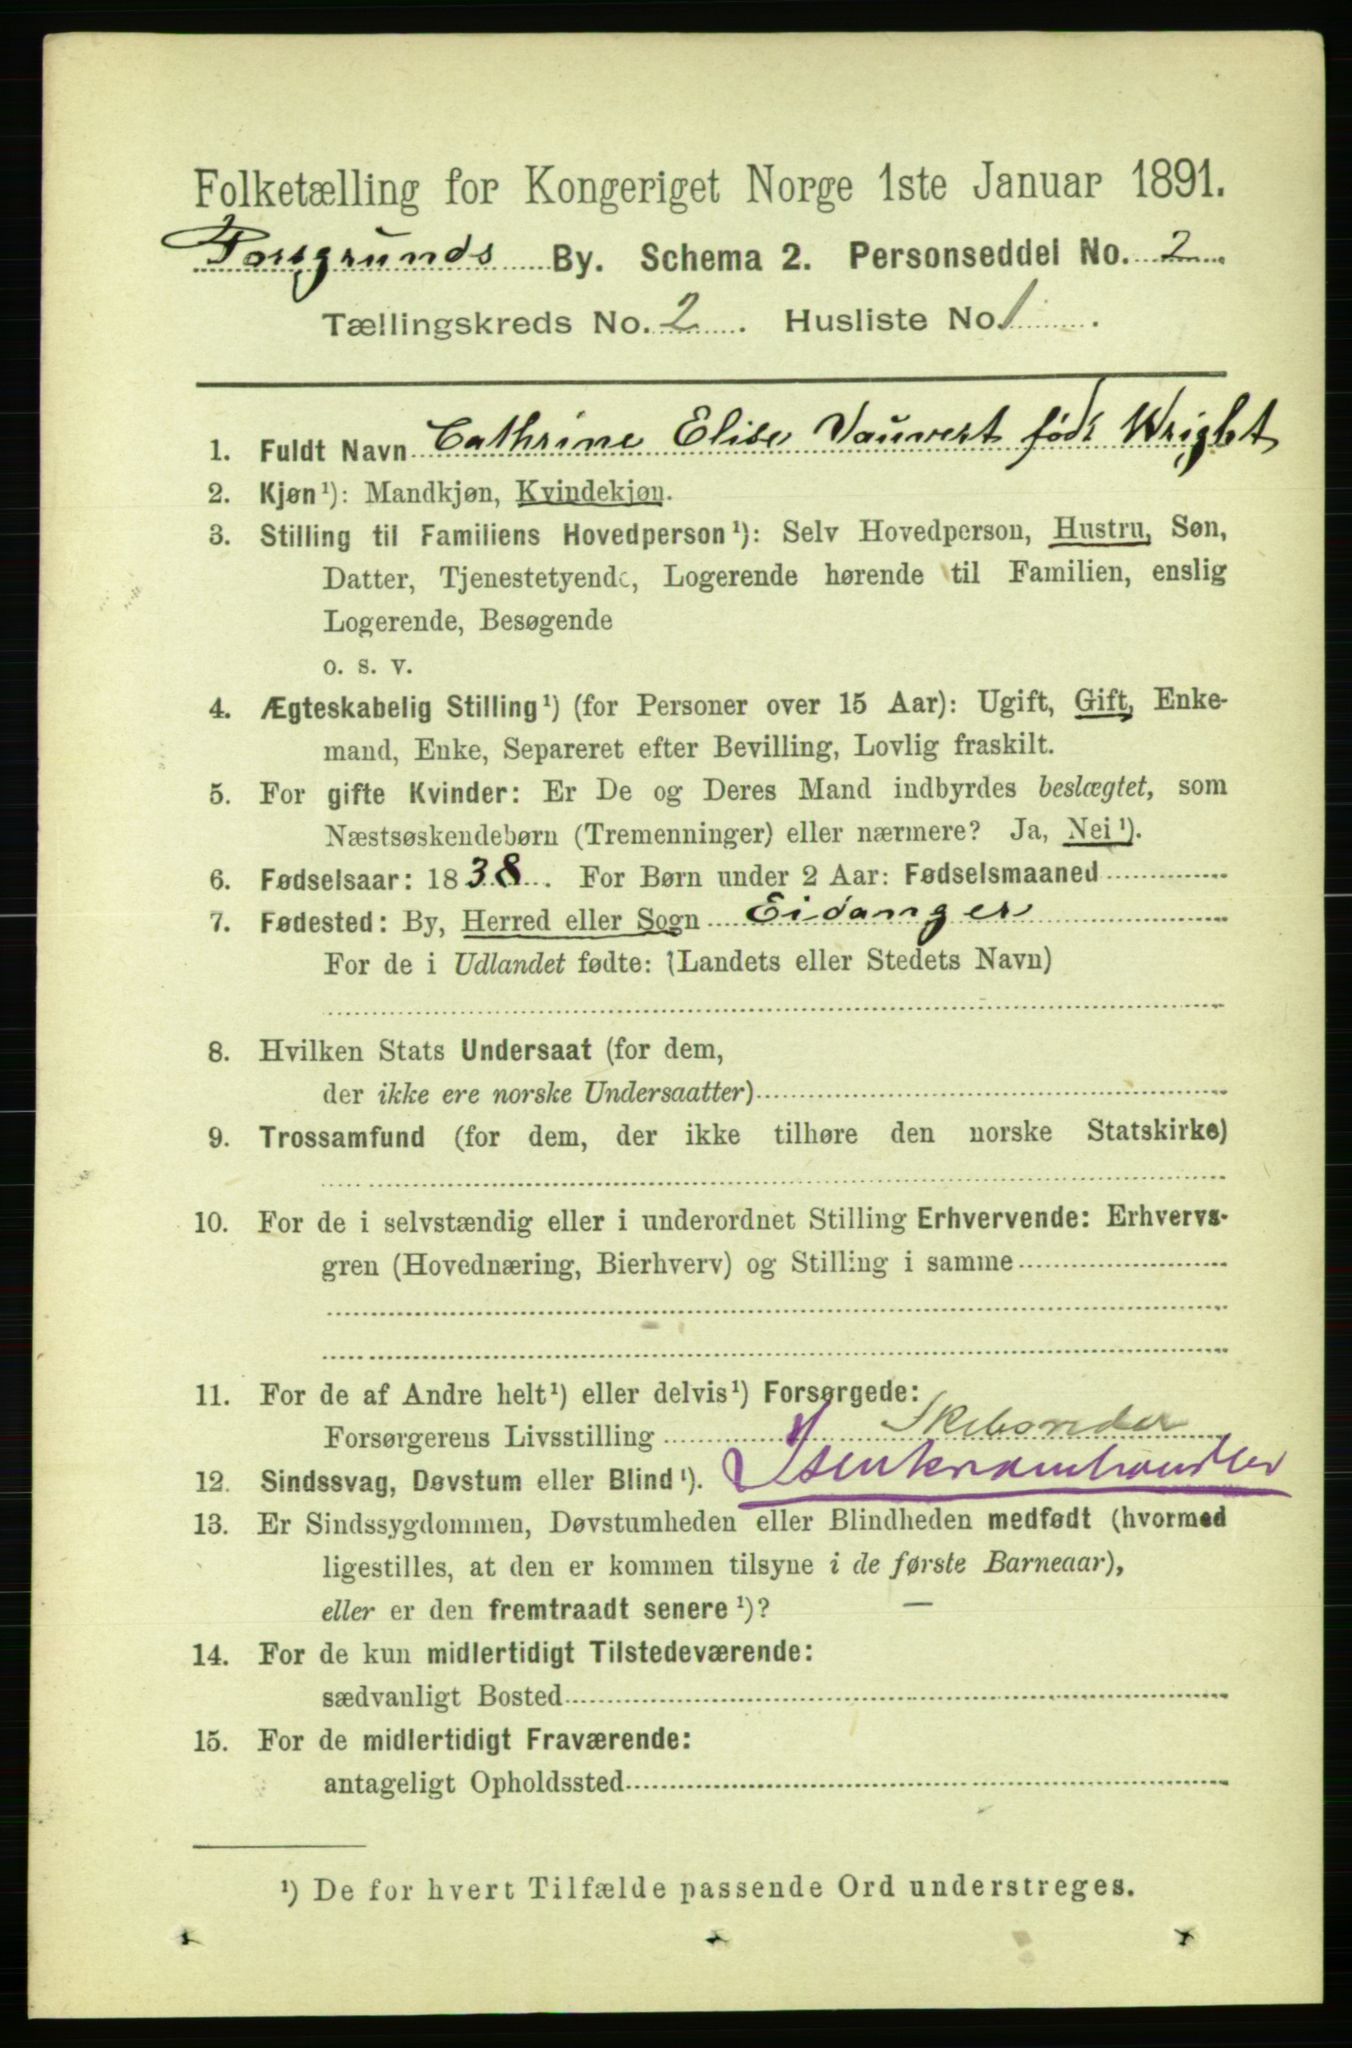 Folketælling for Kongeriget Norge 1ste Januar 1891.
Porsgrunds By. Schema 2. Personseddel No. 2
Tællingskreds No. 2. Husliste No. 1.
1. Fuldt Navn Cathrine Elise Vauvert født Wright
2. Kjøn¹): Mandkjøn, Kvindekjøn.
3. Stilling til Familiens Hovedperson¹): Selv Hovedperson, Hustru, Søn,
Datter, Tjenestetyende, Logerende hørende til Familien, enslig
Logerende, Besøgende
o. s. v.
4. Ægteskabelig Stilling¹) (for Personer over 15 Aar): Ugift, Gift, Enke-
mand, Enke, Separeret efter Bevilling, Lovlig fraskilt.
5. For gifte Kvinder: Er De og Deres Mand indbyrdes beslægtet, som
Næstsøskendebørn (Tremenninger) eller nærmere? Ja, Nei¹).
6. Fødselsaar: 1838. For Børn under 2 Aar: Fødselsmaaned
7. Fødested: By, Herred eller Sogn Eidanger
For de i Udlandet fødte: (Landets eller Stedets Navn)
8. Hvilken Stats Undersaat (for dem,
der ikke ere norske Undersaatter)
9. Trossamfund (for dem, der ikke tilhøre den norske Statskirke)
10. For de i selvstændig eller i underordnet Stilling Erhvervende: Erhvervs-
gren (Hovednæring, Bierhverv) og Stilling i samme
11. For de af Andre helt¹) eller delvis¹) Forsørgede:
Forsørgerens Livsstilling Skibsreder
Isenkramhandler
12. Sindssvag, Døvstum eller Blind¹).
13. Er Sindssygdommen, Døvstumheden eller Blindheden medfødt (hvormed
ligestilles, at den er kommen tilsyne i de første Barneaar),
eller er den fremtraadt senere¹)? —
14. For de kun midlertidigt Tilstedeværende:
sædvanligt Bosted
15. For de midlertidigt Fraværende:
antageligt Opholdssted
¹) De for hvert Tilfælde passende Ord understreges.